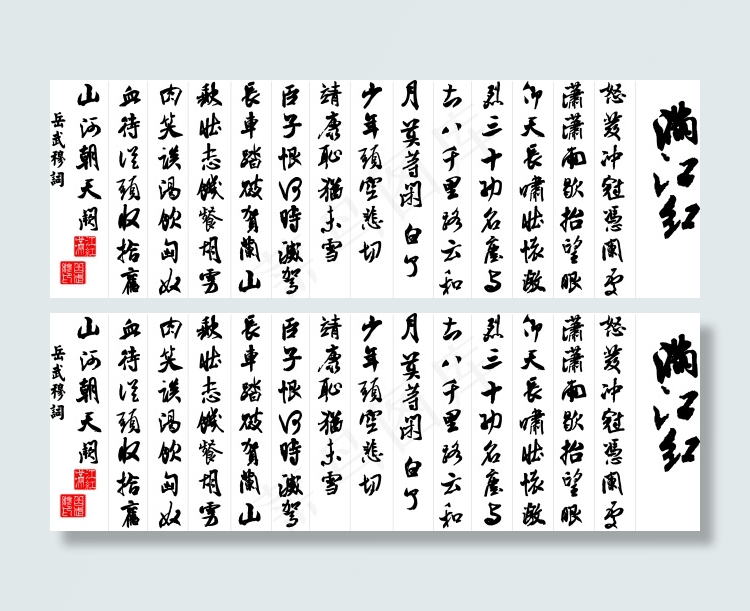 滿江红
怒發冲冠憑闌處
瀟瀟雨歇抬望眼
仰天長嘯壯懷激
烈三十功名塵與
土八千里路云和
月莫等閑白了
少年頭空悲切
靖康恥猶未雪
臣子恨何時滅駕
長車踏破賀蘭山
缺壯志饑餐胡虜
肉笑談渴飲匈奴
血待從頭收拾舊
山河朝天闕
岳武穆詞
滿江红
怒發冲冠憑闌處
瀟瀟雨歇抬望眼
仰天長嘯壯懷激
烈三十功名塵與
土八千里路云和
月莫等閑白了
少年頭空悲切
靖康恥猶未雪
臣子恨何時滅駕
長車踏破賀蘭山
缺壯志饑餐胡虜
肉笑談渴飲匈奴
血待從頭收拾舊
山河朝天闕
岳武穆詞